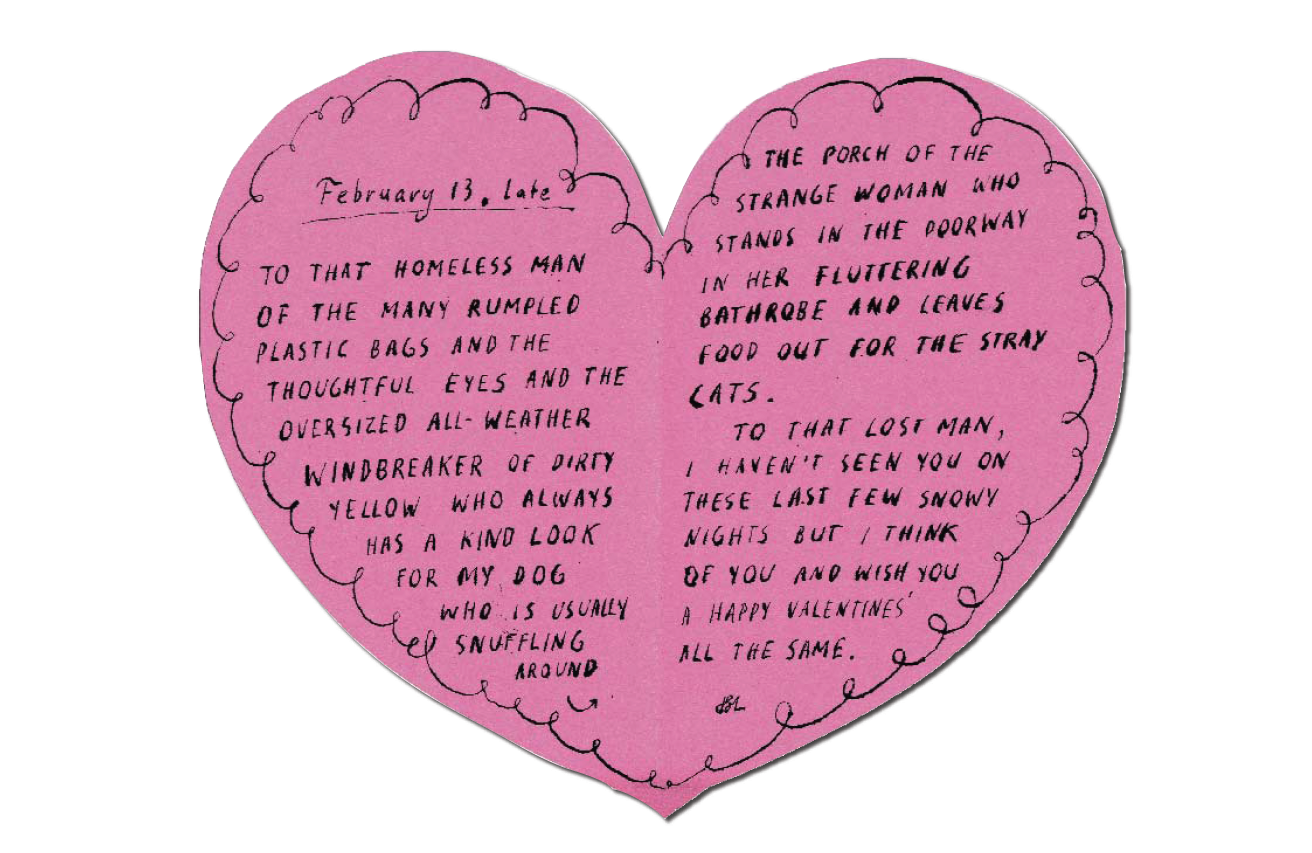 February 13, late
TO THAT HOMELESS MAN
OF THE MANY RUMPLED
PLASTIC BAGS AND THE
THOUGHTFUL EYES AND THE
OVERSIZED ALL-WEATHER
WINDBREAKER OF DIRTY
YELLOW WHO ALWAYS
HAS A KIND LOOK
FOR MY DOG
WHO IS USUALLY
SNUFFLING
AROUND
THE PORCH OF THE
STRANGE WOMAN WHO
STANDS IN THE DOORWAY
IN HER FLUTTERING
BATHROBE AND LEAVES
FOOD OUT FOR THE STRAY
CATS.
TO THAT LOST MAN,
I HAVEN'T SEEN YOU ON
THESE LAST FEW SNOWY
NIGHTS BUT I THINK
OF YOU AND WISH YOU
A HAPPY VALENTINES'
ALL THE SAME.